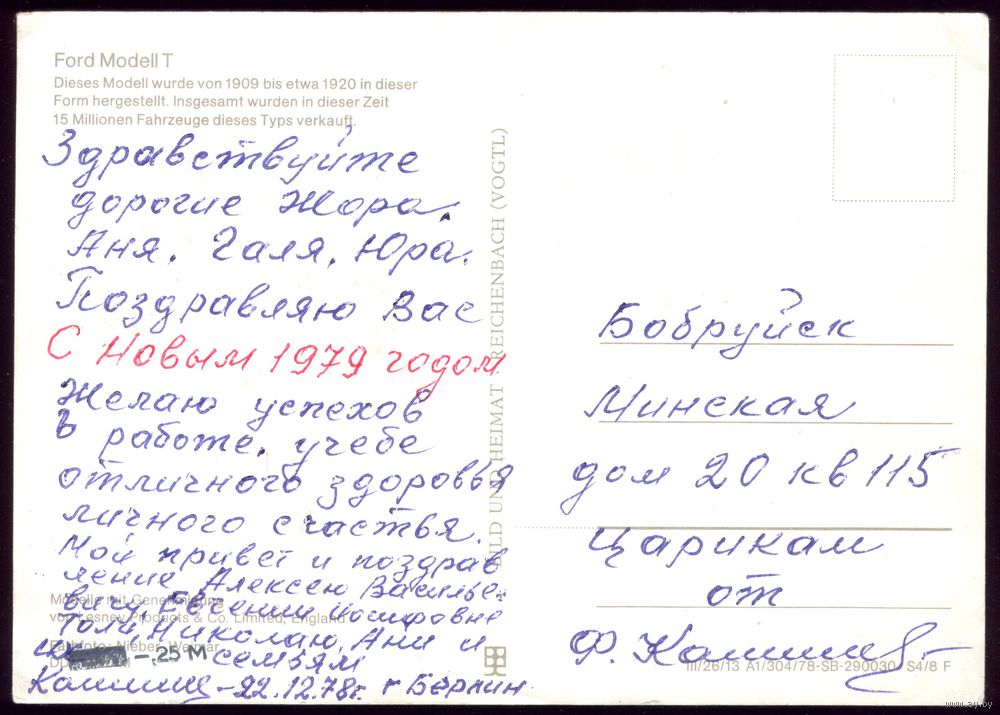 Ford Modell T
Dieses Modell wurde von 1909 bis etwa 1920 in dieser
Form hergestellt. Insgesamt wurden in dieser Zeit
15 Millionen Fahrzeuge dieses Typs verkauft.
Здравствуйте
дорогие Жора.
Аня. Галя. Юра.
Поздравляю Вас
С Новым 1979 годом
Желаю успехов
в работе, учебе
отличного здоровья
личного счастья.
Мой привет и поздрав
ление Алексею Василье-
вичу, Евгении Иосифовне
Толи, Николаю, Ани и
семьям
22.12.78г. г Берлин
Modelle mit Genehmigung
von Lesney Products & Co. Limited, England
Farbfoto: Nieber, Weimar
-.25 M
BILD UND HEIMAT REICHENBACH (VOGTL)
Бобруйск
Минская
дом 20 кв 115
Царикам
от
Ф.
III/26/13 A1/304/78-SB-290030 S4/8 F
www.ay.by